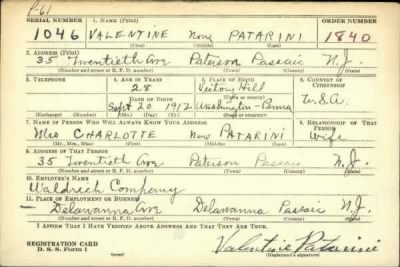 P61
SERIAL NUMBER 1. NAME (Print) ORDER NUMBER
1046 VALENTINE None PATARINI 1840
(First) (Middle) (Last)
2. ADDRESS (Print)
35 Twentieth Ave Paterson Passaic N.J.
(Number and street or R. F. D. number) (Town) (County) (State)
3. TELEPHONE 4. AGE IN YEARS 5. PLACE OF BIRTH 6. COUNTRY OF CITIZENSHIP
28 Victory Hill
DATE OF BIRTH (Town or county)
Sept 20 1912 Washington-Penna U.S.A.
(Exchange) (Number) (Mo.) (Day) (Yr.) (State or country)
7. NAME OF PERSON WHO WILL ALWAYS KNOW YOUR ADDRESS 8. RELATIONSHIP OF THAT PERSON
Mrs CHARLOTTE None PATARINI Wife
(Mr., Mrs., Miss) (First) (Middle) (Last)
9. ADDRESS OF THAT PERSON
35 Twentieth Ave Paterson Passaic N.J.
(Number and street or R. F. D. number) (Town) (County) (State)
10. EMPLOYER'S NAME
Waldrich Company
11. PLACE OF EMPLOYMENT OR BUSINESS
Delawanna Ave Delawanna Passaic N.J.
(Number and street or R. F. D. number) (Town) (County) (State)
I AFFIRM THAT I HAVE VERIFIED ABOVE ANSWERS AND THAT THEY ARE TRUE.
REGISTRATION CARD
D. S. S. Form 1 (over) Valentine Patarini
(Registrant's signature)